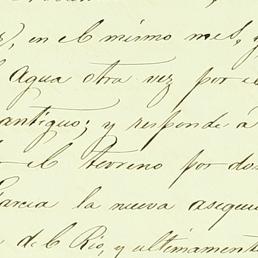 en el mismo mes, y
Agua otra vez por el
antiguo; y responde á
el terreno por dos
Garcia la nueva asequia
del Rio, y ultimamente